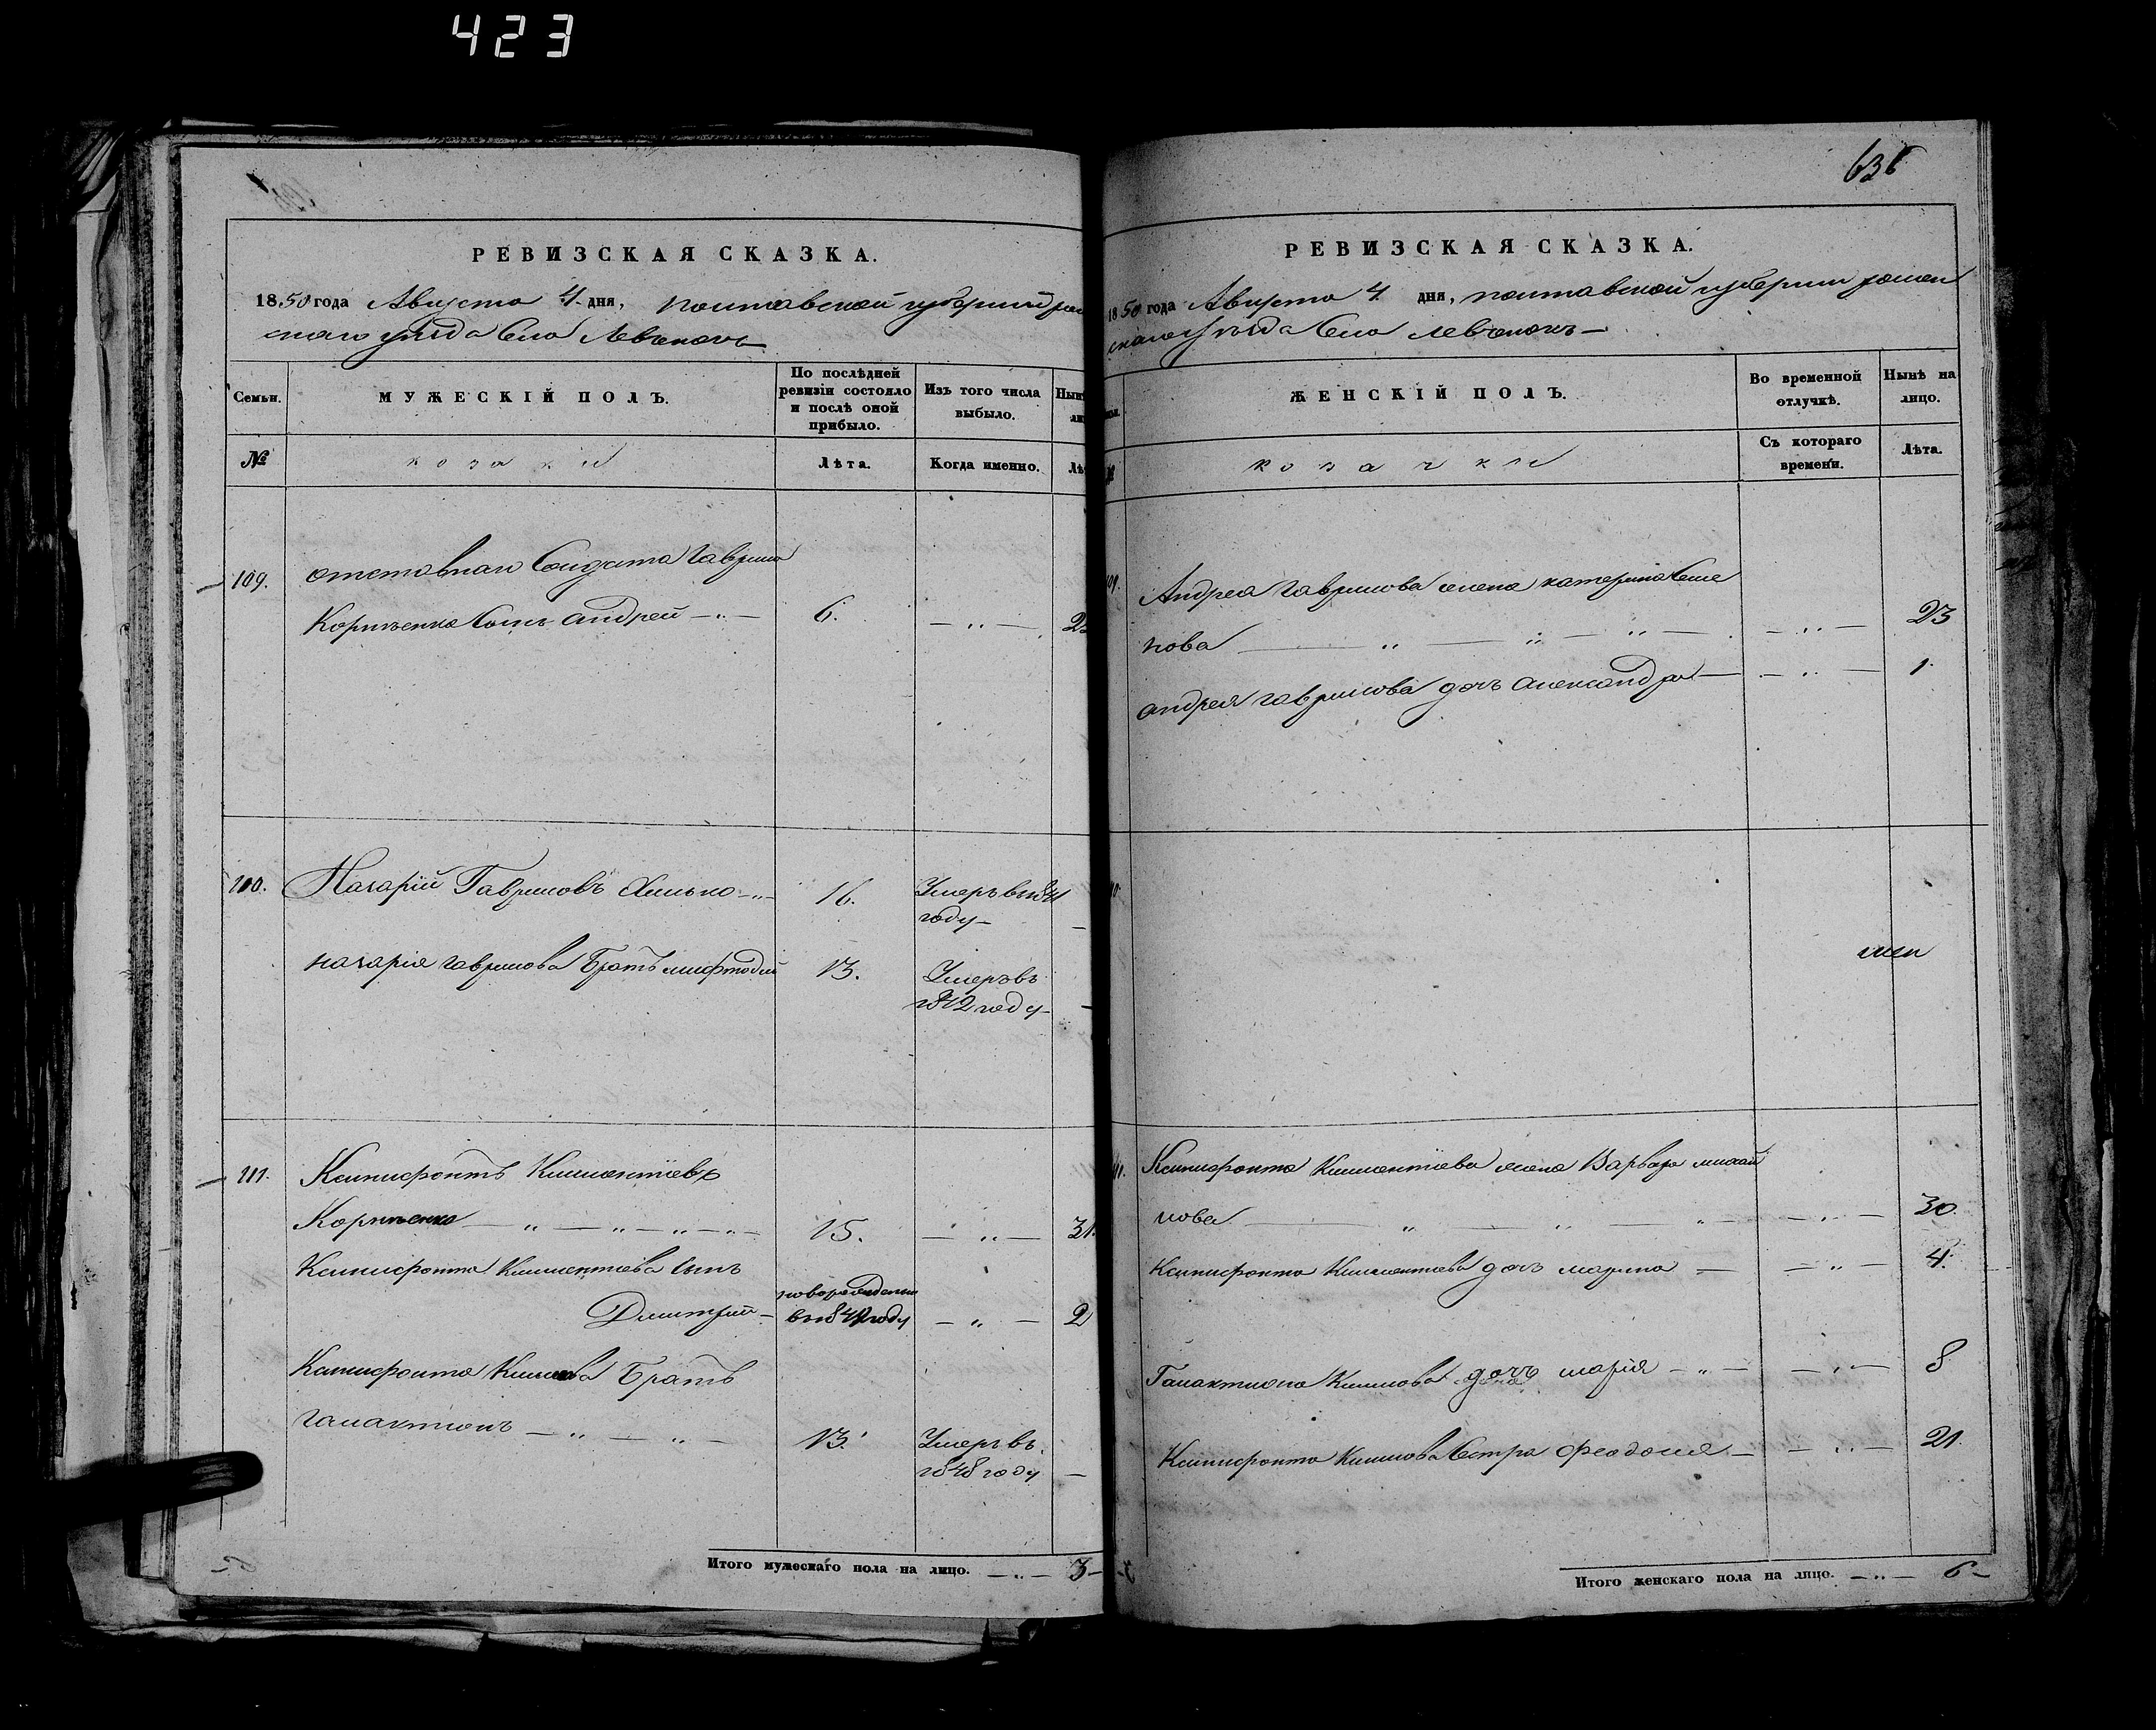 423
636
РЕВИЗСКАЯ СКАЗКА.
1850 года Августа 4 дня, Полтавской губернии ромен
скаго уѣзда Села Левченокъ
Семьи.
МУЖЕСКІЙ ПОЛЪ.
По послѣдней ревизіи состояло и послѣ оной прибыло.
Изъ того числа выбыло.
№
козаки
Лѣта.
Когда именно.
109. отставнаго Солдата Гаврила
Корниенка Сынъ андрей —„— 6. —„—
110. Назарій Гавриловъ Хилько —„— 16. Умеръ в 1841
году —
назарія гаврилова Братъ мифтодій 13. Умеръ въ
1842 году —
111. Ксинофонтъ Климентіевъ
Корниенко —„—„—„—„— 15. —„— 31.
Ксинофонта Климентиева сынъ
новорожденый
Дмитрий — в 1849 году —„— 2
Ксинофонта Климова Братъ
галактионъ —„—„— 13. Умеръ въ
1848 году —
Итого мужескаго пола на лицо. —„— 3 —
РЕВИЗСКАЯ СКАЗКА.
1850 года Августа 4 дня, полтавской губернии ромен
скаго Уѣзда Села Левченокъ —
ЖЕНСКІЙ ПОЛЪ.
Во временной отлучкѣ.
Нынѣ на лицо.
козачки
Съ котораго времени.
Лѣта.
Андрея Гаврилова жена катерина Семе
нова —„—„—„— —„— 23
андрея гаврилова дочь александра — —„— 1.
Ксинофонта Климентіева жена Варвара михай
лова —„—„—„— —„— 30
Ксинофонта Климентиева дочь марина — —„— 4.
Галактиона Климова дочь марія —„— —„— 8
Ксинофонта Климова Сестра Феодосия — —„— 21.
Итого женскаго пола на лицо. —„— 6 —